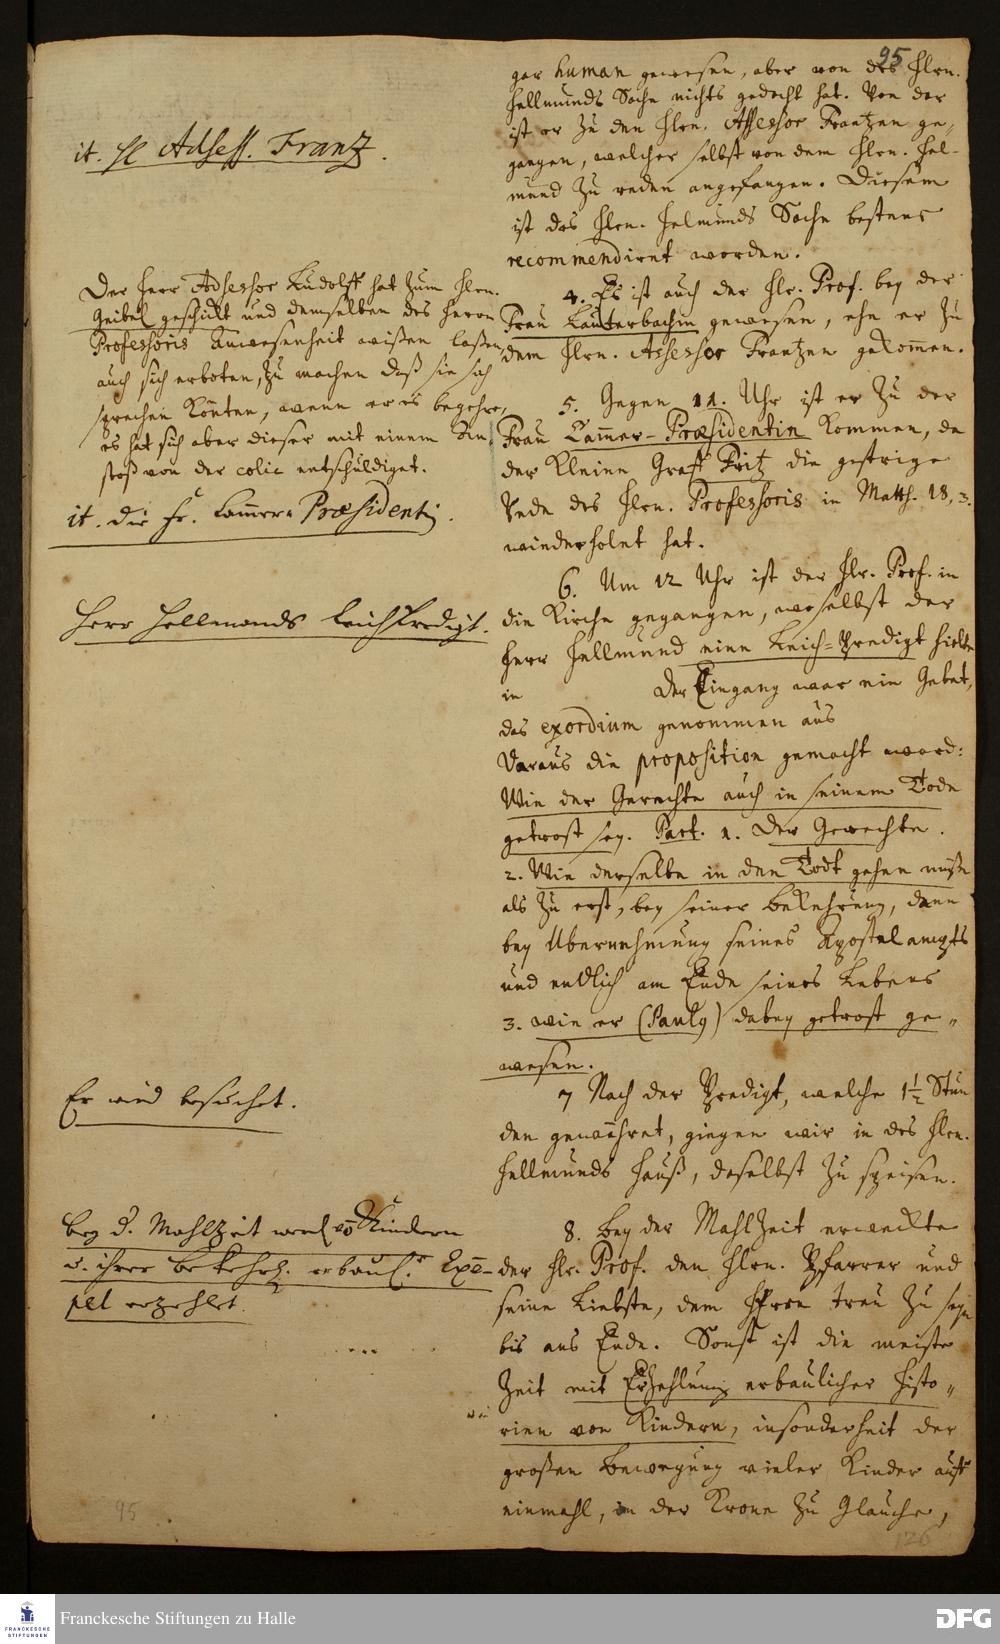 95
it. H Adsess. Franz.
Der Herr Adsessor Rudolff hat zum Hrn.
Geibel geschickt und demselben des Herrn
Professoris Anwesenheit wißen laßen,
auch sich erboten, zu machen daß sie sich
sprechen könten, wenn er es begehre,
es hat sich aber dieser mit einem An„
stoß von der colic entschuldiget.
it. die Fr. Cammer-Præsidentin.
Herr Hellmunds LeichPredigt.
Er wird besuchet.
Bey d. Mahlzeit werd. vo Kindern
u. ihrer Bekehrg. erbaul. Exem-
pel erzehlet.
gar human gewesen, aber von des Hrn.
Hellmunds Sache nichts gedacht hat. Von dar
ist er zu den Hrn. Assessor Frantzen ge„
gangen, welcher selbst von dem Hrn. Hel-
mund zu reden angefangen. Diesem
ist des Hrn. Helmunds Sache bestens
recommendiret worden.
4. Es ist auch der Hr. Prof. bey der
Frau Lauterbachin gewesen, ehe er zu
dem Hrn. Assessor Frantzen gekommen.
5. Gegen 11. Uhr ist er zu der
Frau Cammer-Præsidentin kommen, da
der kleine Graff Fritz die gestrige
Rede des Hrn. Professoris in Matth. 18, 3.
wiederholet hat.
6. Um 12 Uhr ist der Hr. Prof. in
die Kirche gegangen, woselbst der
Herr Hellmund eine Leich-Predigt hielte
in der Eingang war ein Gebet,
das exordium genommen aus
Daraus die proposition gemacht ward:
Wie der Gerechte auch in seinem Tode
getrost sey. Part. 1. Der Gerechte.
2. Wie derselbe in den Todt gehen müße
als zu erst, bey seiner Bekehrung, dann
bey Ubernehmung seines Apostelampts
und endlich am Ende seines Lebens
3. wie er (Paulg) dabey getrost ge„
wesen.
7 Nach der Predigt, welche 1½ Stun
den gewähret, giengen wir in des Hrn.
Hellmunds Hauß, daselbst zu speisen.
8. Bey der Mahlzeit erweckte
der Hr. Prof. den Hrn. Pfarrer und
seine Liebste, dem HErrn treu zu seyn
bis ans Ende. Sonst ist die meiste
Zeit mit Erzehlung erbaulicher Histo„
rien von Kindern, insonderheit der
großen Bewegung vieler Kinder auff
einmahl, in der Krone zu Glaucha,
95
126
FRANCKESCHE
STIFTUNGEN
Franckesche Stiftungen zu Halle
DFG